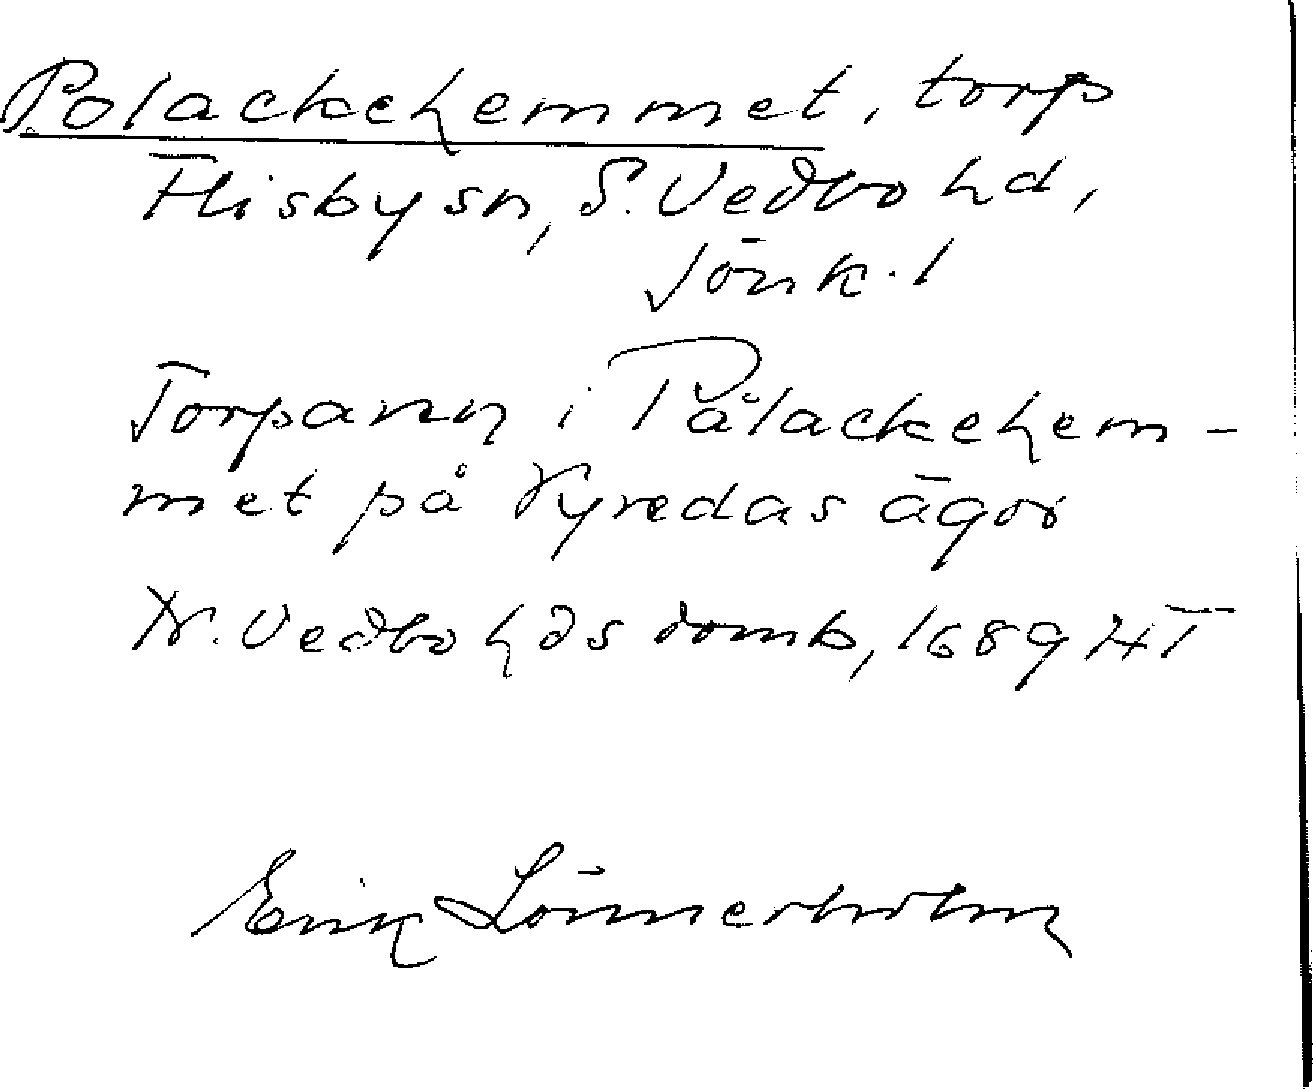 Polackehemmet, torp
Flisby sn, S. Vedbo hd,
Jönk. l
Torparen i Pålackehem-
met på Vyredas ägor
N. Vedbo hds domb, 1689 HT
Erik Lönnerholm